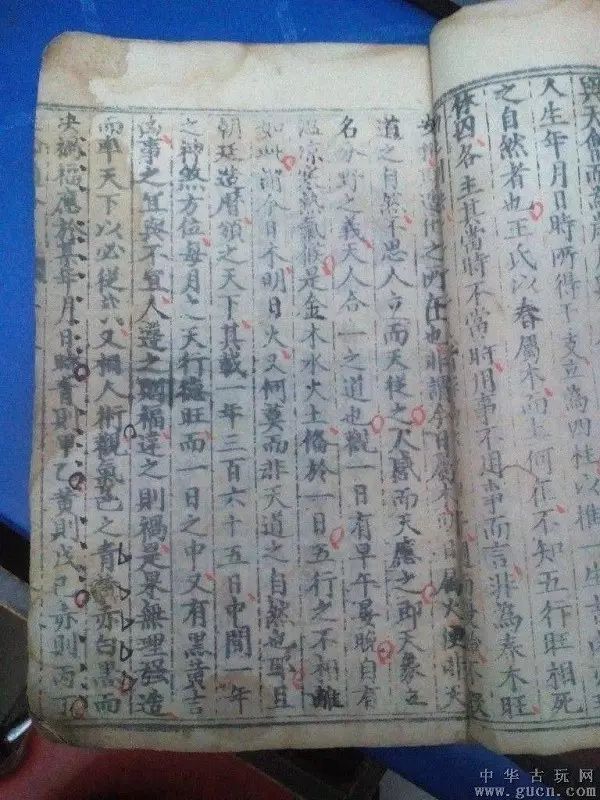 與天
人生年月日時所得干支立為四柱以推一生吉
之自然者也王氏以春屬木而土何在不知五行旺相死
休囚各主其當時不當時用事不用事而言非為春木旺
之所在也非謂今日屬木明日屬火便非天
道之自然不思人立而天從之人感而天應之即天象立
名分野之義天人合一之道也觀一日有早午晏晚自有
溫涼寒熱氣候是金木水火土備於一日五行之不相離
如此謂今日木明日火又何莫而非天道之自然也耶且
朝廷造曆頒之天下其載一年三百六十五日中間一年
之神煞方位每月之天行德旺而一日之中又有黑黃吉
凶事之宜與不宜人遵之則福違之則禍是果無理强造
而率天下以必從哉又相人術觀氣色之青黃赤白黑而
決禍福應於某年月日時青則甲乙黃則戊己赤則丙丁
中华古玩网
www.gucn.com